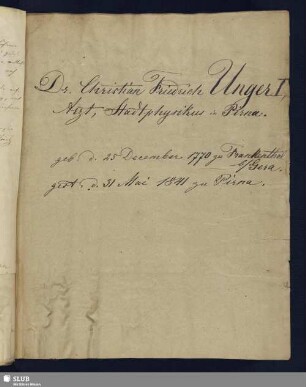 Dr. Christian Friedrich Unger I,
Arzt, Stadtphysikus in Pirna.
geb. d. 25 December 1770 zu Frankenthal
b/Gera.
gest. d. 31 Mai 1841 zu Pirna.
SLUB